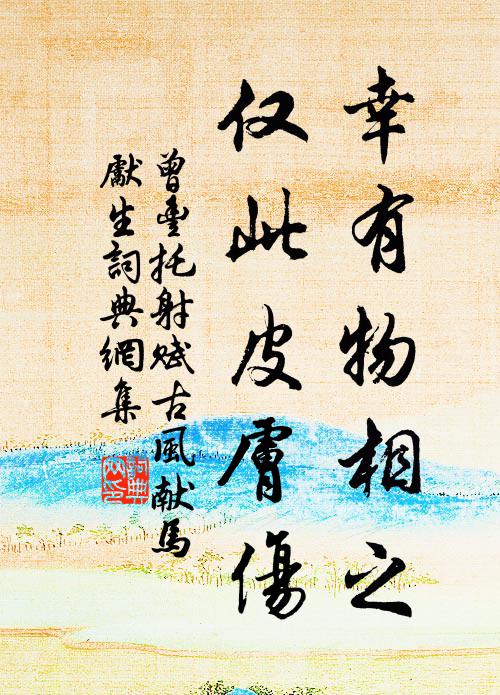 幸有物相之
仅此皮膚傷
曾豊托射赋古風献馬
獻生詞典網集